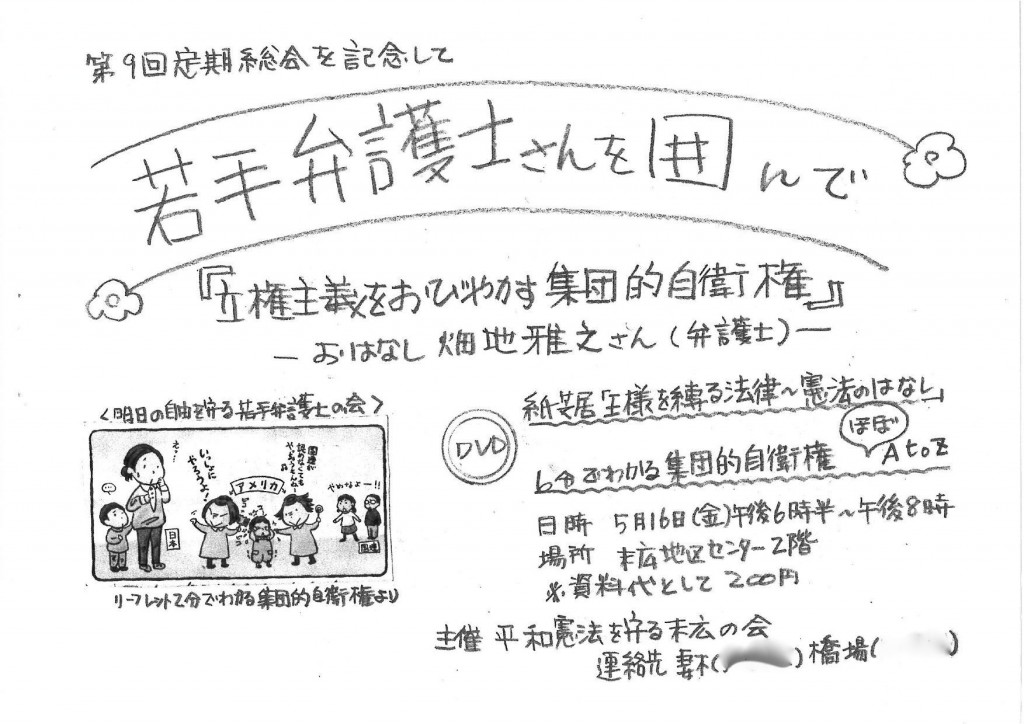 第9回定期総会を記念して
若手弁護士さんを囲んで
『立権主義をおびやかす集団的自衛権』
―おはなし 畑地雅之さん(弁護士)―
<明日の自由を守る若手弁護士の会>
え…
いっしょにやろうよ!
国連が認めなくてもやっちゃうもんねー!!
アメリカ
やめなよー!!
日本
国連
リーフレット2分でわかる集団的自衛権より
DVD
紙芝居「王様を縛る法律~憲法のはなし」
6分でわかる集団的自衛権 ほぼAtoZ
日時 5月16日(金)午後6時半~午後8時
場所 末広地区センター2階
※資料代として200円
主催 平和憲法を守る末広の会
連絡先 妻木( )橋場( )